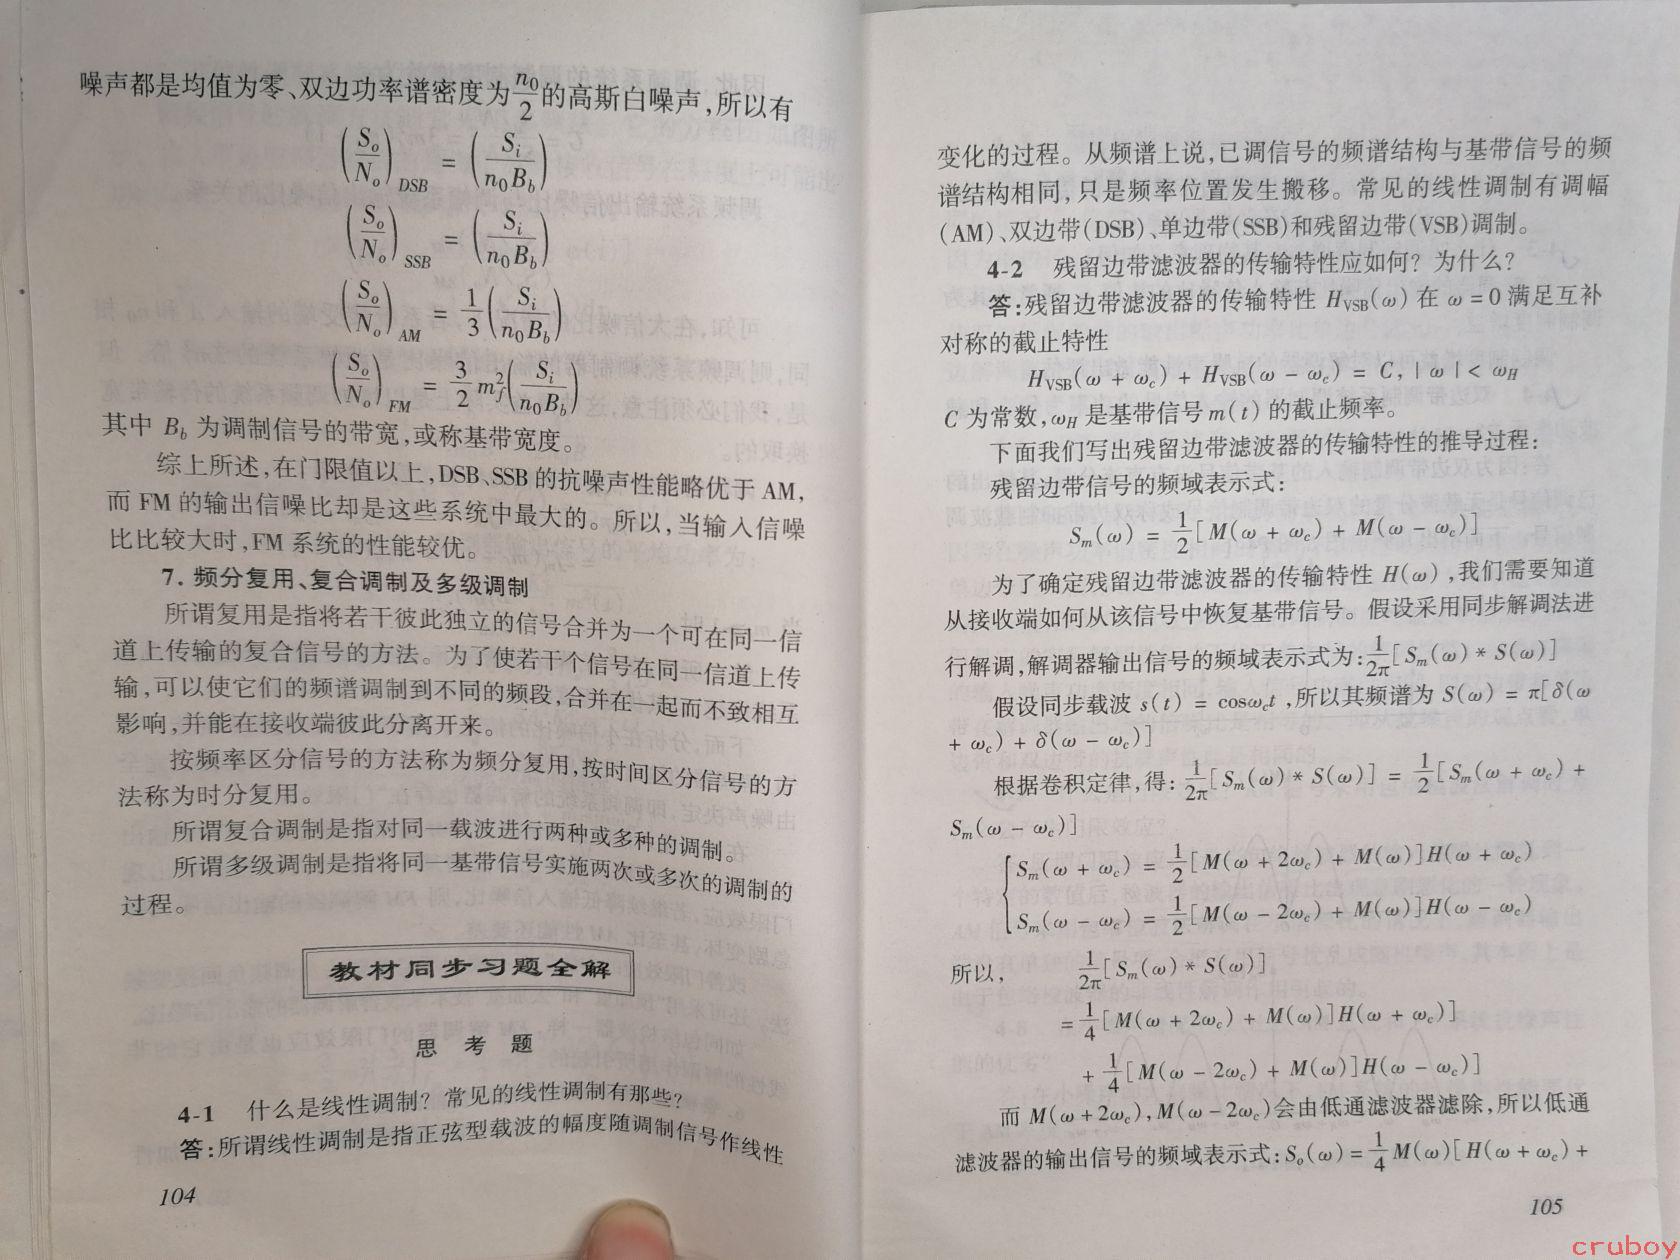 噪声都是均值为零、双边功率谱密度为 n₀/2 的高斯白噪声,所以有
(Sₒ/Nₒ)DSB = (Sᵢ/n₀B_b)
(Sₒ/Nₒ)SSB = (Sᵢ/n₀B_b)
(Sₒ/Nₒ)AM = 1/3 (Sᵢ/n₀B_b)
(Sₒ/Nₒ)FM = 3/2 m_f² (Sᵢ/n₀B_b)
其中 B_b 为调制信号的带宽,或称基带宽度。
综上所述,在门限值以上,DSB、SSB 的抗噪声性能略优于 AM,
而 FM 的输出信噪比却是这些系统中最大的。所以,当输入信噪
比比较大时,FM 系统的性能较优。
7. 频分复用、复合调制及多级调制
所谓复用是指将若干彼此独立的信号合并为一个可在同一信
道上传输的复合信号的方法。为了使若干个信号在同一信道上传
输,可以使它们的频谱调制到不同的频段,合并在一起而不致相互
影响,并能在接收端彼此分离开来。
按频率区分信号的方法称为频分复用,按时间区分信号的方
法称为时分复用。
所谓复合调制是指对同一载波进行两种或多种的调制。
所谓多级调制是指将同一基带信号实施两次或多次的调制的
过程。
教材同步习题全解
思 考 题
4-1 什么是线性调制? 常见的线性调制有那些?
答:所谓线性调制是指正弦型载波的幅度随调制信号作线性
104
变化的过程。从频谱上说,已调信号的频谱结构与基带信号的频
谱结构相同,只是频率位置发生搬移。常见的线性调制有调幅
(AM)、双边带(DSB)、单边带(SSB)和残留边带(VSB)调制。
4-2 残留边带滤波器的传输特性应如何? 为什么?
答:残留边带滤波器的传输特性 H_VSB(ω) 在 ω=0 满足互补
对称的截止特性
H_VSB(ω + ω_c) + H_VSB(ω − ω_c) = C, |ω| < ω_H
C 为常数,ω_H 是基带信号 m(t) 的截止频率。
下面我们写出残留边带滤波器的传输特性的推导过程:
残留边带信号的频域表示式:
S_m(ω) = 1/2 [M(ω + ω_c) + M(ω − ω_c)]
为了确定残留边带滤波器的传输特性 H(ω),我们需要知道
从接收端如何从该信号中恢复基带信号。假设采用同步解调法进
行解调,解调器输出信号的频域表示式为: 1/2π [S_m(ω) * S(ω)]
假设同步载波 s(t) = cosω_ct,所以其频谱为 S(ω) = π[δ(ω
+ ω_c) + δ(ω − ω_c)]
根据卷积定律,得: 1/2π [S_m(ω) * S(ω)] = 1/2 [S_m(ω + ω_c) +
S_m(ω − ω_c)]
{ S_m(ω + ω_c) = 1/2 [M(ω + 2ω_c) + M(ω)]H(ω + ω_c)
S_m(ω − ω_c) = 1/2 [M(ω − 2ω_c) + M(ω)]H(ω − ω_c)
所以, 1/2π [S_m(ω) * S(ω)]
= 1/4 [M(ω + 2ω_c) + M(ω)]H(ω + ω_c)]
+ 1/4 [M(ω − 2ω_c) + M(ω)]H(ω − ω_c)]
而 M(ω+2ω_c), M(ω−2ω_c)会由低通滤波器滤除,所以低通
滤波器的输出信号的频域表示式: Sₒ(ω) = 1/4 M(ω)[H(ω + ω_c) +
105
cruboy